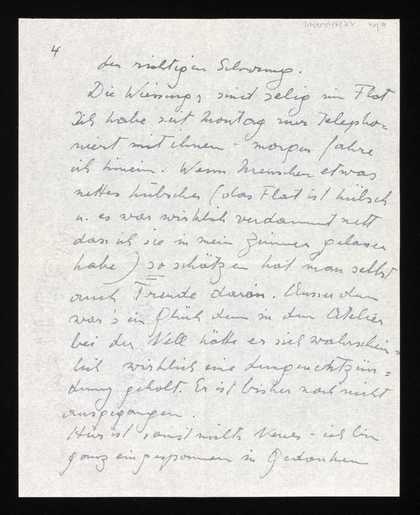 4
den richtigen Schwung.
Die Wiesings sind selig im Flat
Ich habe seit Montag nur telepho-
niert mit ihnen - morgen fahre
ich hinein. Wenn Menschen etwas
nettes hübsches (das Flat ist hübsch
u. es war wirklich verdammt nett
dass ich sie in mein Zimmer gelassen
habe) so schätzen hat man selbst
auch Freude daran. Ausserdem
war's ein Glück denn in dem Atelier
bei der hätte er sich wahrschein=
lich wirklich eine Lungenentzün=
dung geholt. Er ist bisher noch nicht
ausgegangen.
Hier ist sonst nichts Neues - ich bin
ganz eingesponnen in Gedanken